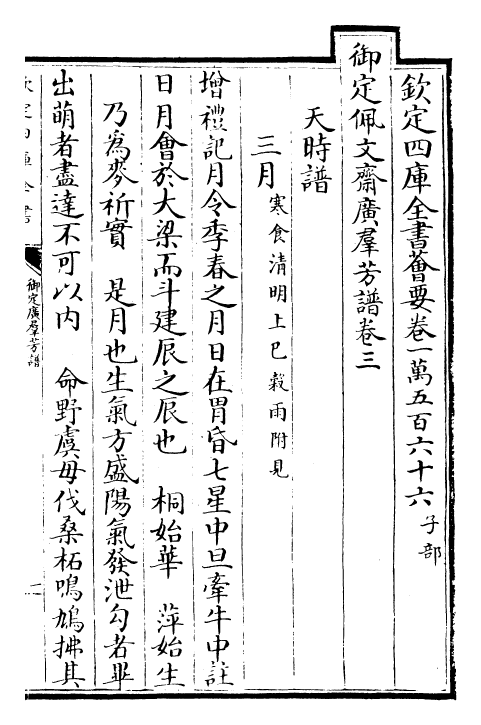 欽定四庫全書薈要卷一萬五百六十六子部
御定佩文齋廣羣芳譜卷三
天時譜
三月寒食清明上巳穀雨附見
增禮記月令季春之月日在胃昏七星中旦牽牛中註
日月會於大梁而斗建辰之辰也　桐始華　萍始生
乃為麥祈實　是月也生氣方盛陽氣發泄勾者畢
出萌者盡達不可以内　命野虞毋伐桑柘鳴鳩拂其
欽定四庫全書
御定廣羣芳譜
一